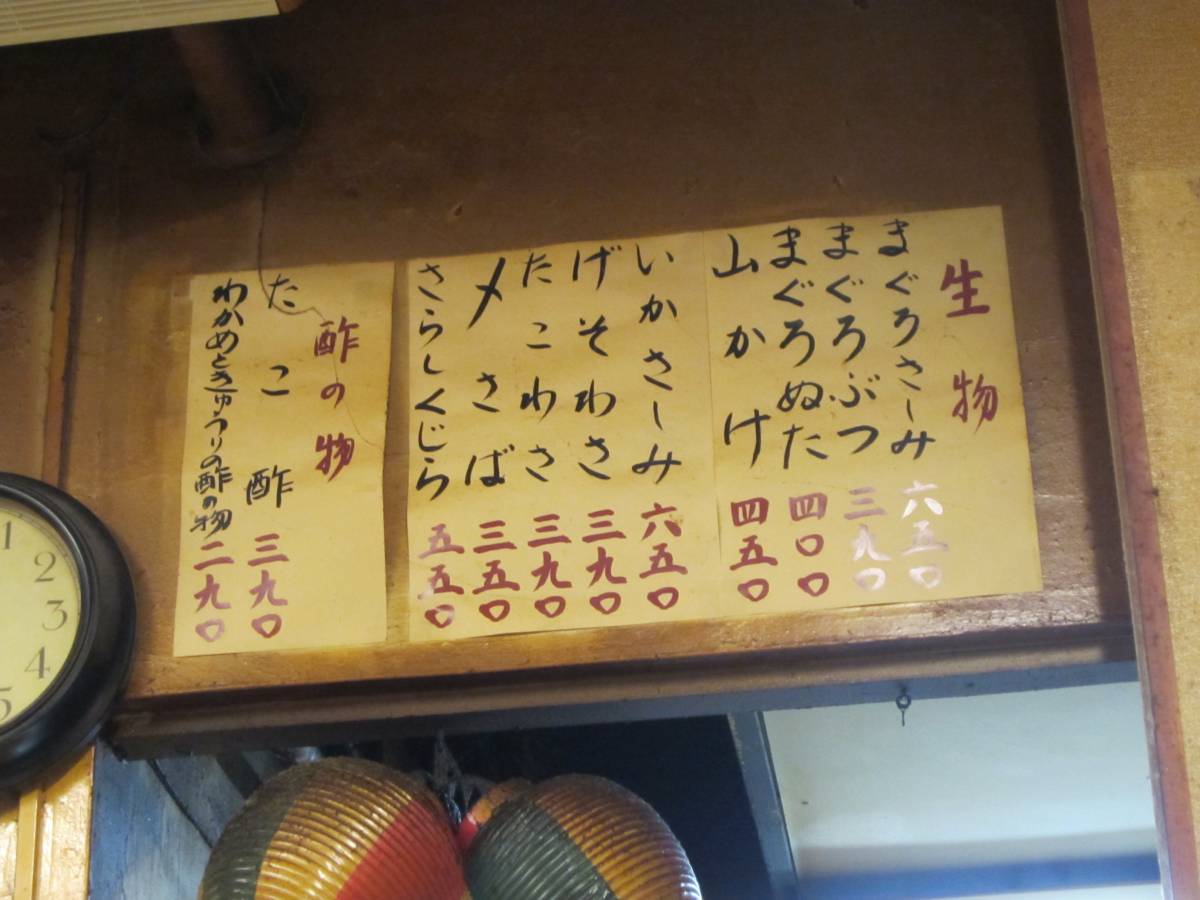 生物
まぐろさしみ 六五〇
まぐろぶつ 三九〇
まぐろぬた 四〇〇
山かけ 四五〇
いかさしみ 六五〇
げそわさ 三九〇
たこわさ 三九〇
〆さば 三五〇
さらしくじら 五五〇
酢の物
たこ酢 三九〇
わかめときゅうりの酢の物 二九〇
1
2
3
4
5